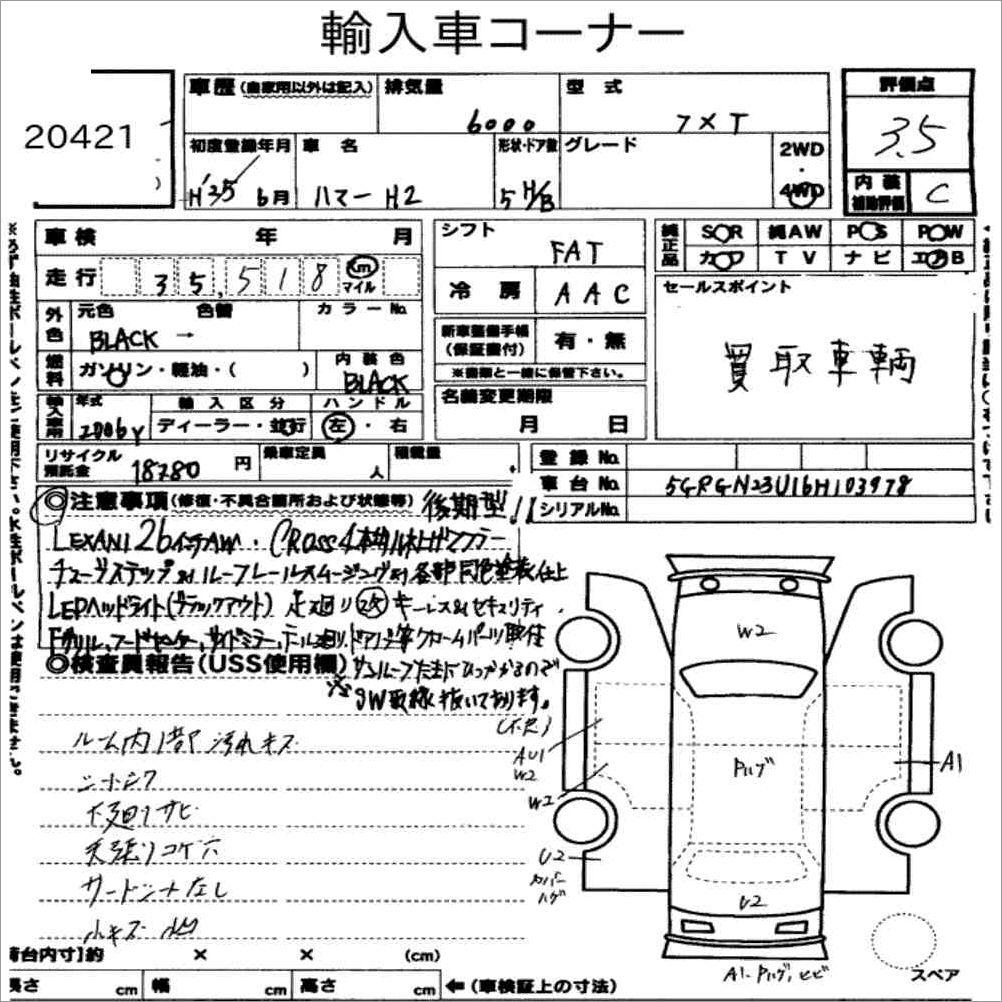 輸入車コーナー
20421
車歴(自家用以外は記入) 排気量 型式 評価点
6000 フメイ 3.5
初度登録年月 車名 形状・ドア数 グレード 2WD・4WD
H'25 6月 ハマー H2 5 H/B
内装補助評価 C
車検 年 月 シフト FAT
純正品 SR 純AW PS PW
カワ TV ナビ エアB
走行 35,518 km マイル
冷房 AAC
セールスポイント
買取車輌
外色 元色 色替 カラーNo.
BLACK →
新車整備手帳(保証書付) 有・無
※書類と一緒に保管下さい。
燃料 ガソリン・軽油・( ) 内装色 BLACK
名義変更期限 月 日
輸入車用 年式 輸入区分 ハンドル
2006y ディーラー・並行 左・右
リサイクル預託金 18780円 乗車定員 人 積載量
登録No.
車台No. 5GRGN23U16H103978
シリアルNo.
◎注意事項(修復・不具合箇所および状態等) 後期型!!
LEXANI 26インチAW・CROSS4本出しマフラー
チューブステップ ルーフレールスムージング 各部同色塗装仕上
LEDヘッドライト(ブラックアウト) 足廻り改 キーレス セキュリティ
Fグリル、フードセンター、サイドミラー、テール廻り、ドアノブ等クロームパーツ取付
◎検査員報告(USS使用欄) サンルーフたまにひっかかるので
※SW配線抜いてあります。
ルーム内1部汚れキズ
シートシワ
下廻りサビ
天張りコゲ穴
サードシートなし
小キズ 小凹
W2
AU1
W2
W2
Pハゲ
A1
U2
カバー
ハゲ
U2
A1.Pハゲ,ヒビ
スペア
荷台内寸】約 × × (cm)
長さ cm 幅 cm 高さ cm ←(車検証上の寸法)